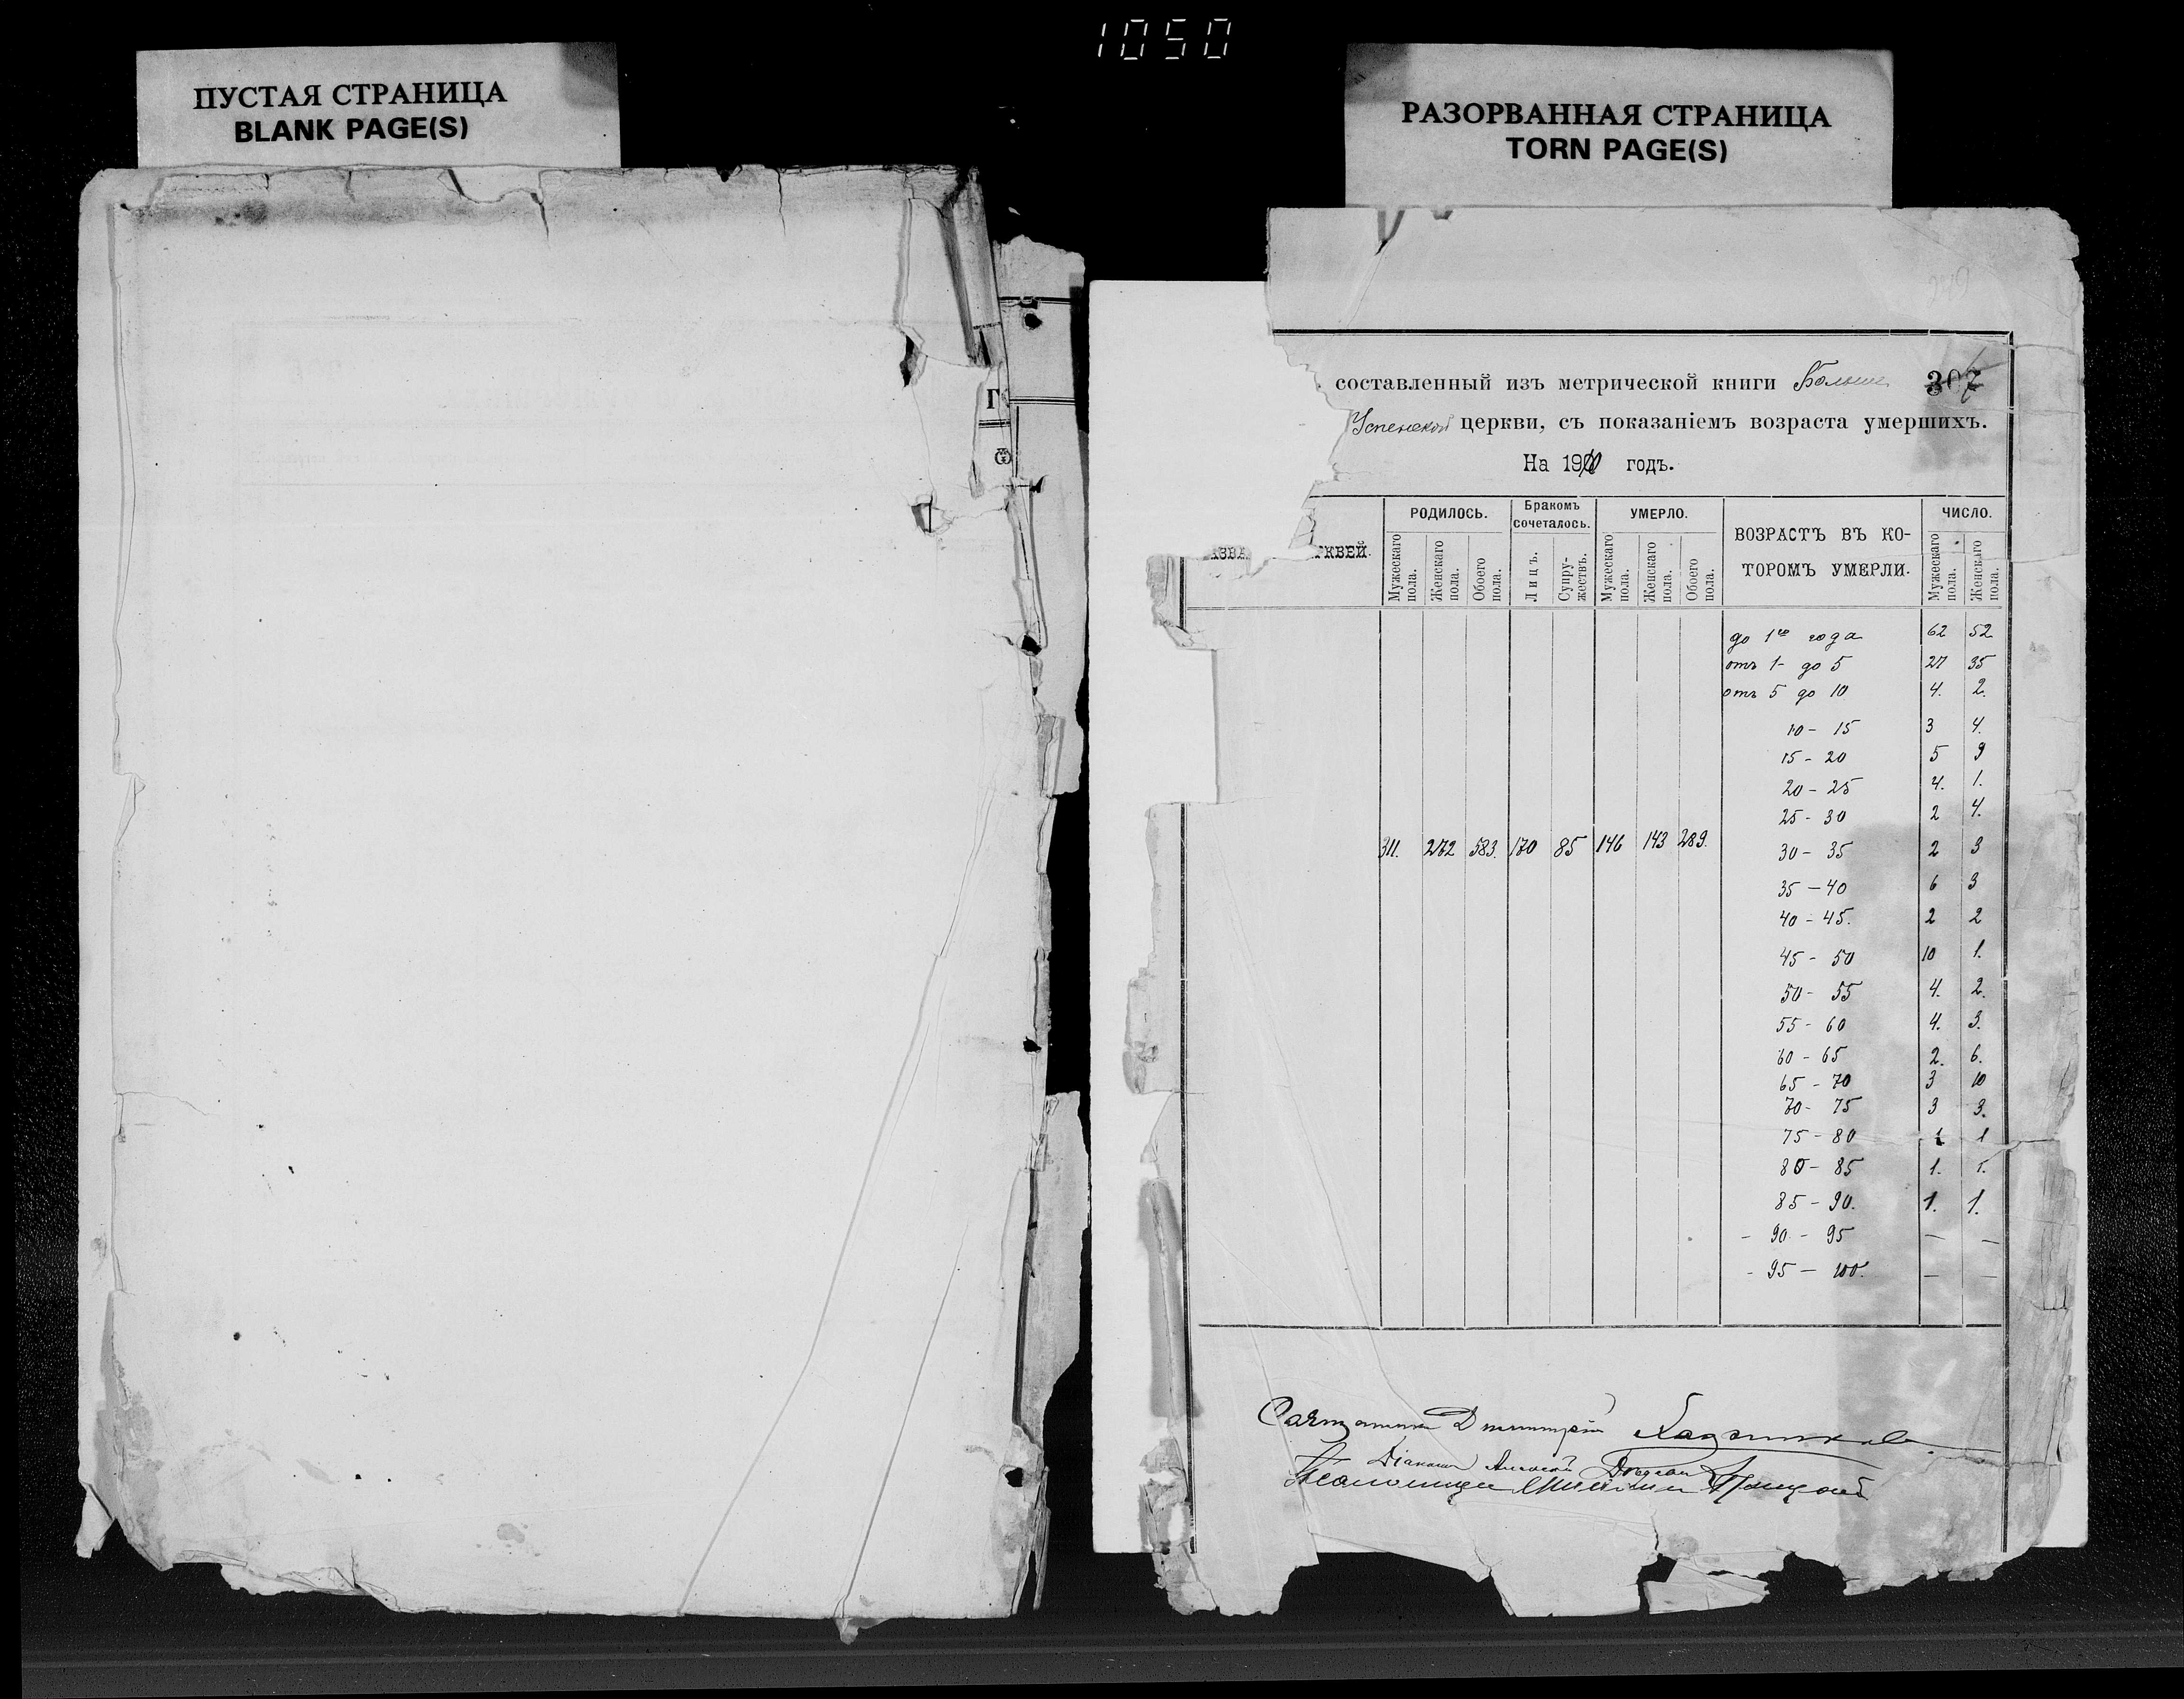 1050
ПУСТАЯ СТРАНИЦА
BLANK PAGE(S)
РАЗОРВАННАЯ СТРАНИЦА
TORN PAGE(S)
составленный изъ метрической книги 307
Успенской церкви, съ показаніемъ возраста умершихъ.
На 19 годъ.
РКВЕЙ.
РОДИЛОСЬ.
Бракомъ сочеталось.
УМЕРЛО.
ВОЗРАСТЪ ВЪ КО-
ТОРОМЪ УМЕРЛИ.
ЧИСЛО.
Мужескаго пола.
Женскаго пола.
Обоего пола.
Лицъ.
Супру-жествъ.
Мужескаго пола.
Женскаго пола.
Обоего пола.
Мужескаго пола.
Женскаго пола.
до 1го года 62 52
отъ 1- до 5 27 35
отъ 5 до 10 4. 2.
10 - 15 3 4.
15 - 20 5 9
20 - 25 4. 1.
25 - 30 2 4.
311. 272 583. 170 85 146 143 289.
30 - 35 2 3
35 - 40 6 3
40 - 45. 2 2
45 - 50 10 1.
50 - 55 4. 2.
55 - 60 4. 3.
60 - 65 2. 6.
65 - 70 3 10
70 - 75 3 3.
75 - 80 1 1
80 - 85 1. 1.
85 - 90. 1. 1.
- 90 - 95 — —
- 95 - 100. — —
Священникъ Дмитрій
Діаконъ Алексей
Псаломщикъ Троицкій